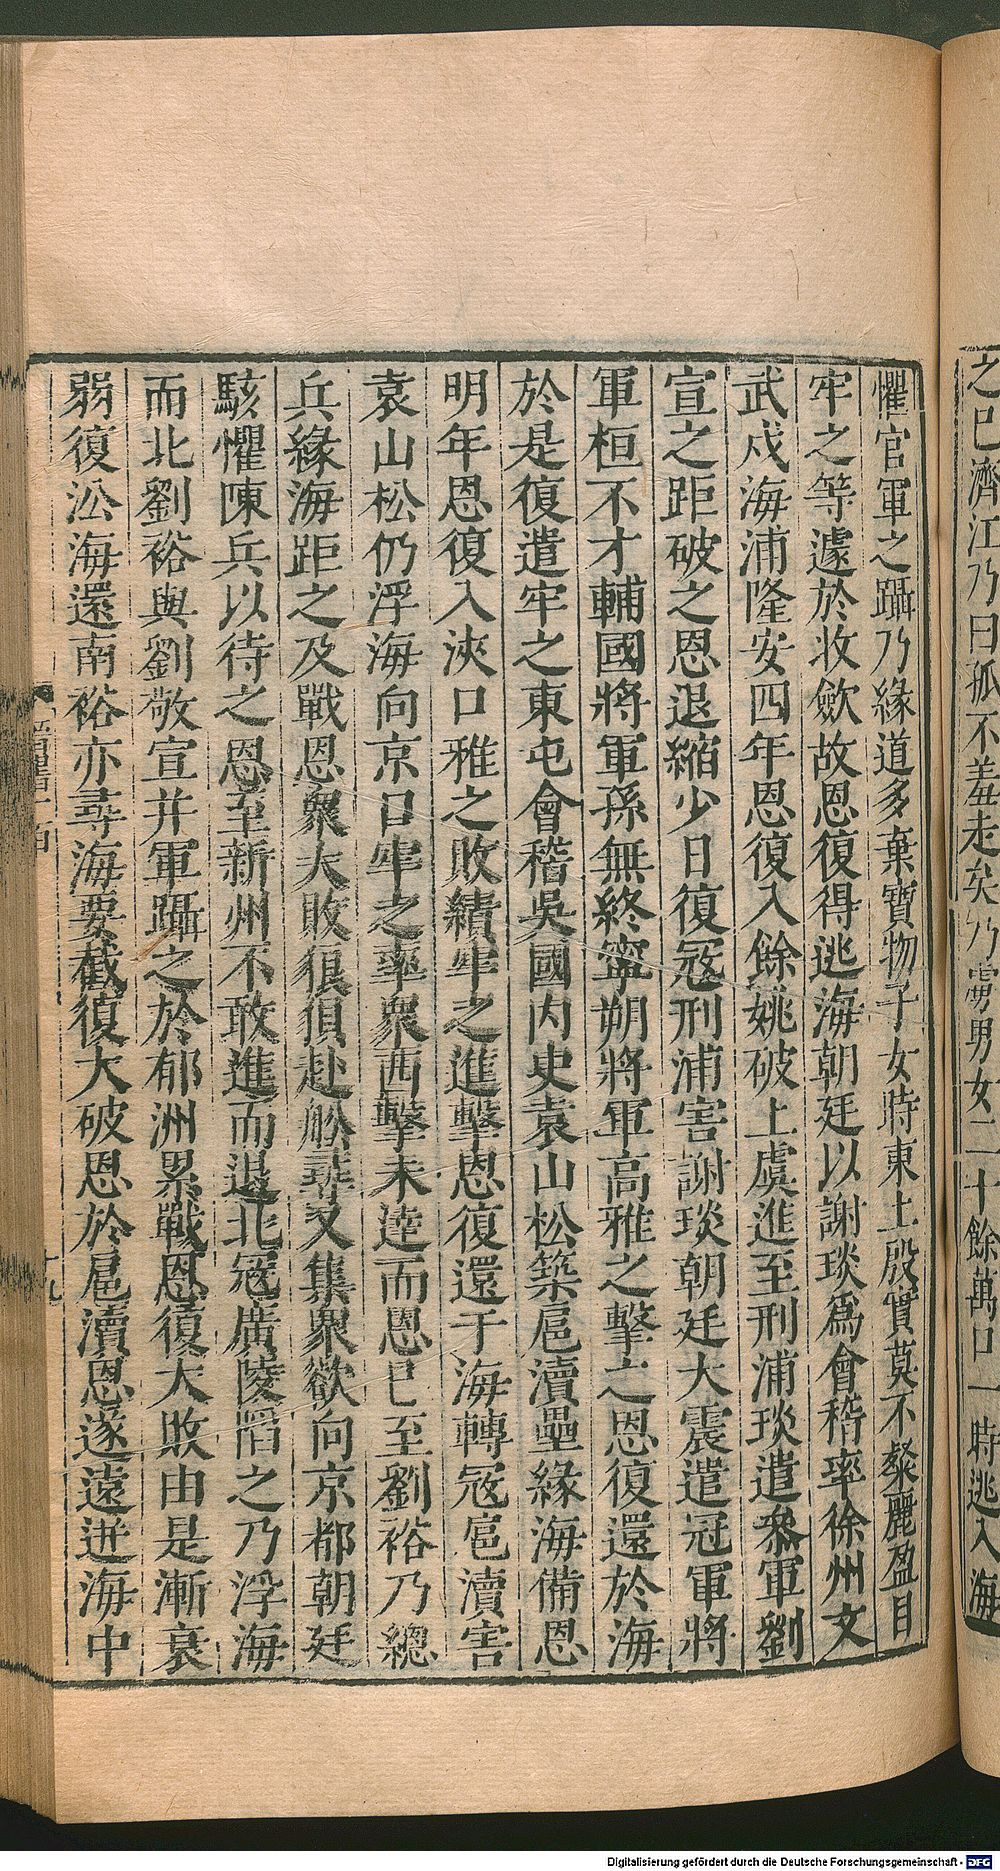 之巳濟江乃曰孤不羞走矣乃虜男女二十餘萬口一時逃入海
懼官軍之躡乃緣道多棄寶物子女時東土殷實莫不粲麗盈目
牢之等遽於收歛故恩復得逃海朝廷以謝琰爲會稽率徐州文
武戍海浦隆安四年恩復入餘姚破上虞進至刑浦琰遣叅軍劉
宣之距破之恩退縮少日復冦刑浦害謝琰朝廷大震遣冠軍將
軍桓不才輔國將軍孫無終寧朔將軍高雅之擊之恩復還於海
於是復遣牢之東屯會稽吳國內史袁山松築扈瀆壘緣海備恩
明年恩復入浹口雅之敗績牢之進擊恩復還于海轉冦扈瀆害
袁山松仍浮海向京口牢之率衆西擊未逹而恩巳至劉裕乃總
兵緣海距之及戰恩衆大敗狼狽赴舩尋又集衆欲向京都朝廷
駭懼陳兵以待之恩至新州不敢進而退北冦廣陵陷之乃浮海
而北劉裕與劉敬宣并軍躡之於郁洲累戰恩復大敗由是漸衰
弱復㳂海還南裕亦尋海要截復大破恩於扈瀆恩遂遠迸海中
十九
Digitalisierung gefördert durch die Deutsche Forschungsgemeinschaft - DFG